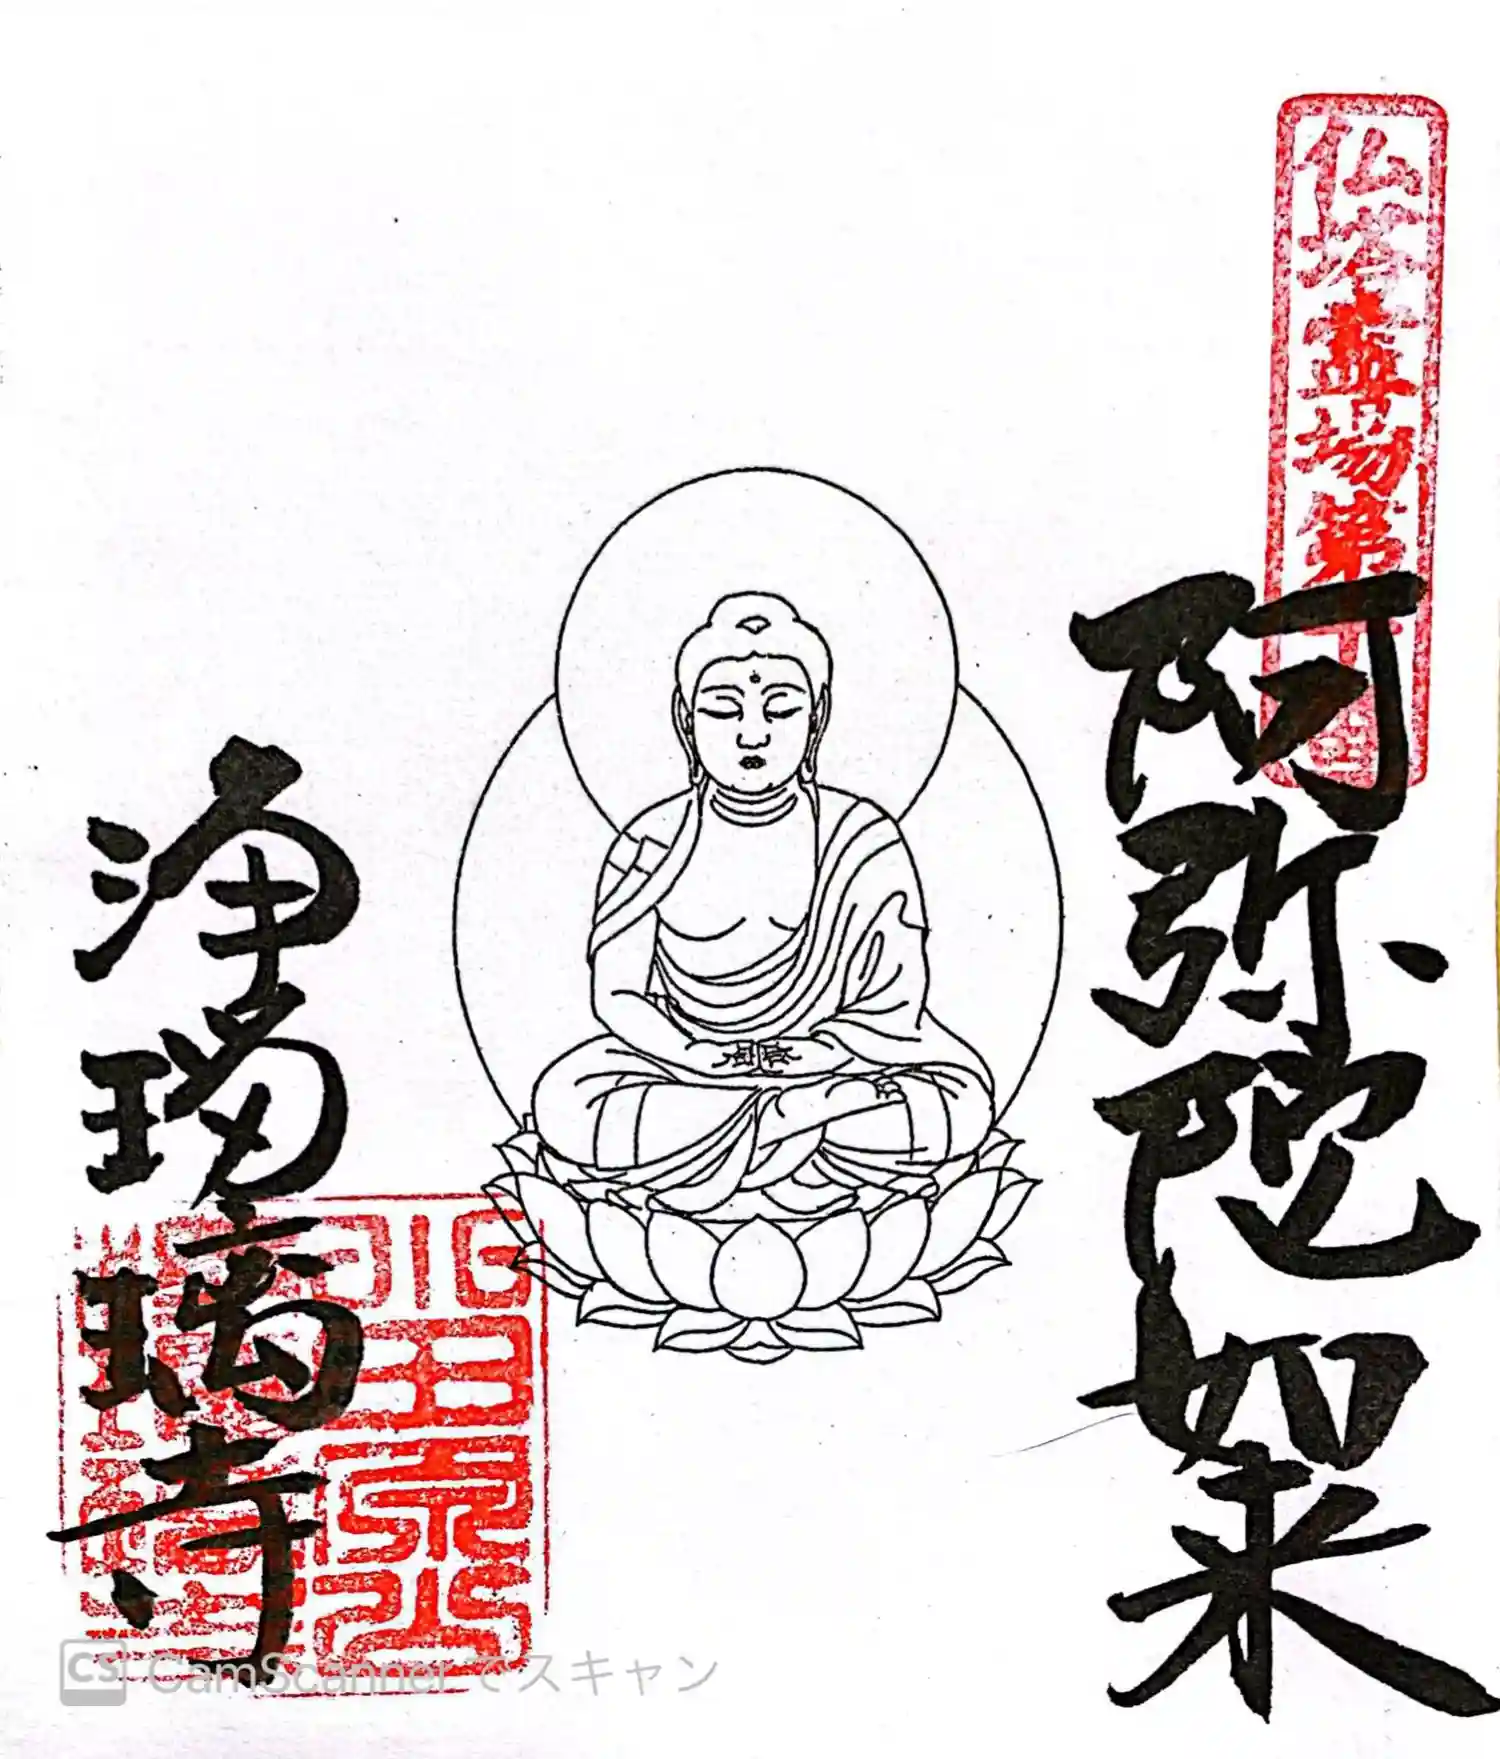 仏塔霊場第十
阿弥陀如来
浄瑠璃寺
小田原山
CS CamScanner でスキャン